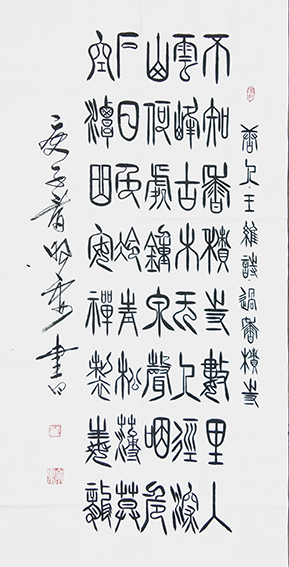 唐人王維詩過香積寺
不知香積寺數里入
雲峰古木无人徑深
山何處鐘泉聲咽危
石日色冷青松薄莫
空潭曲安禪製毒龍
庚子春書